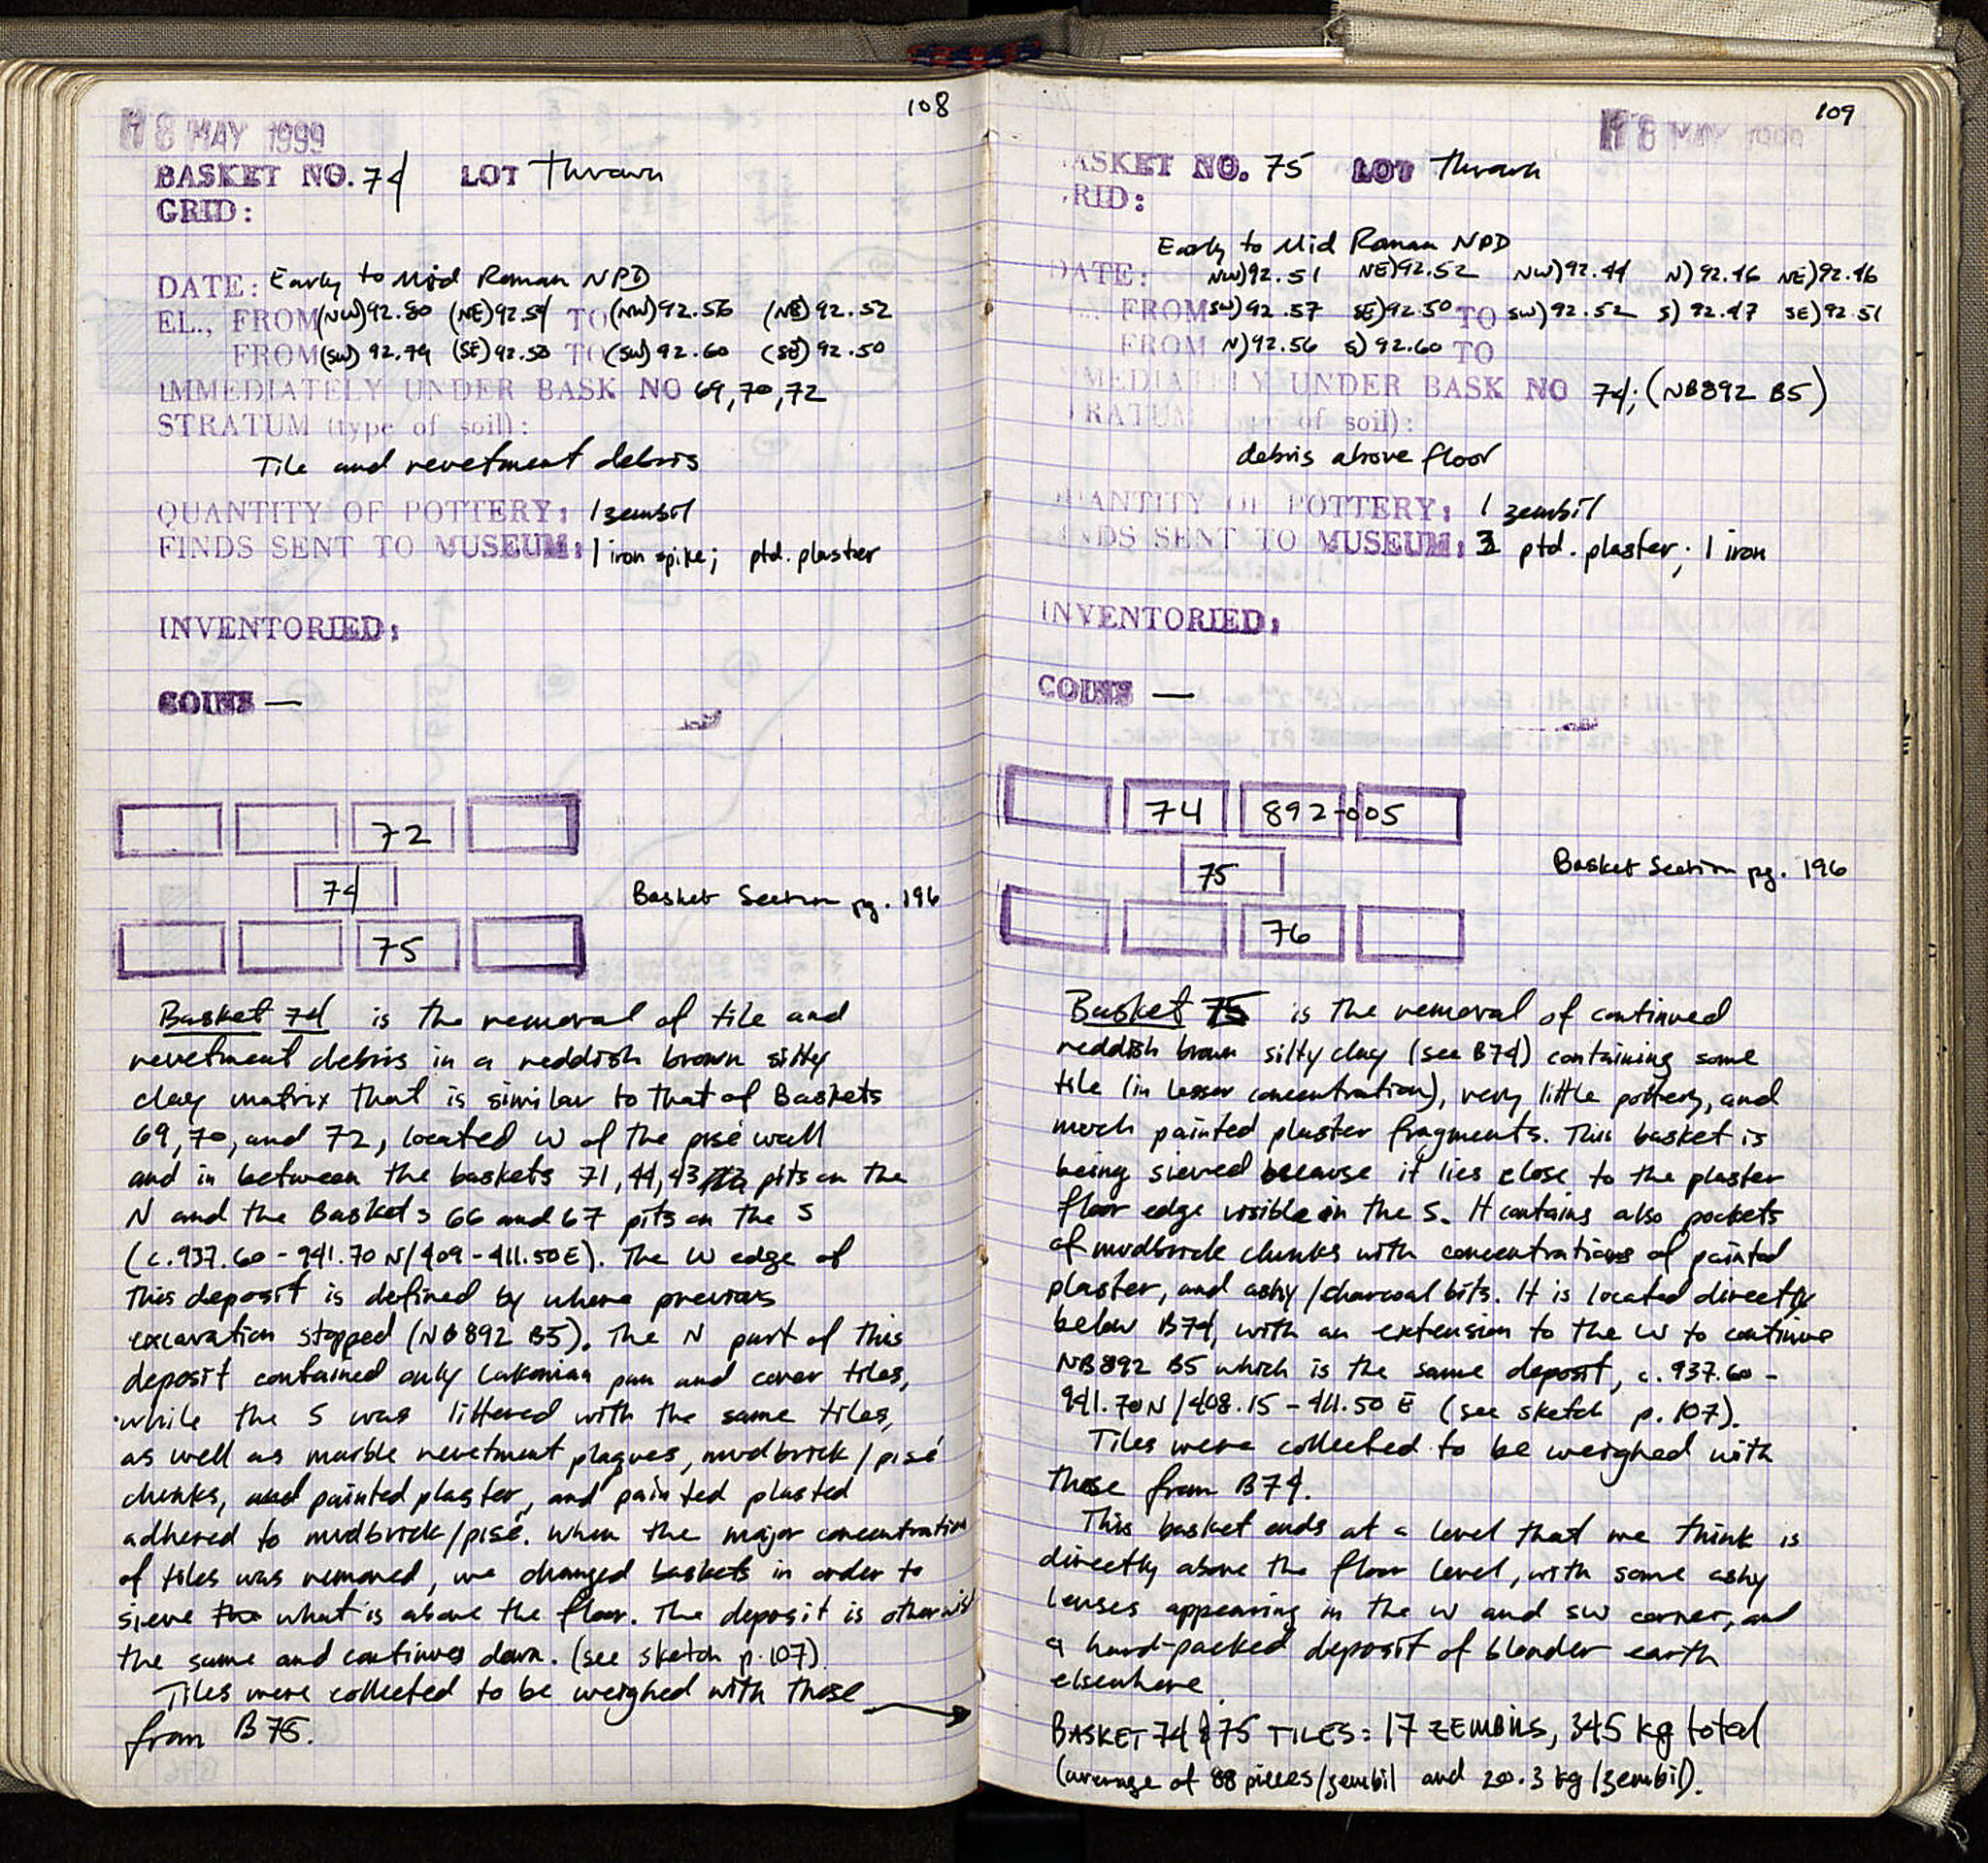 108
18 MAY 1999
BASKET NO. 74 LOT Thrown
GRID:
DATE: Early to Mid Roman NPD
EL., FROM (NW) 92.80 (NE) 92.54 TO (NW) 92.56 (NE) 92.52
FROM (SW) 92.79 (SE) 92.50 TO (SW) 92.60 (SE) 92.50
IMMEDIATELY UNDER BASK NO 69, 70, 72
STRATUM (type of soil):
Tile and revetment debris
QUANTITY OF POTTERY: 1 zembil
FINDS SENT TO MUSEUM: 1 iron spike; ptd. plaster
INVENTORIED:
COINS —
72
74
Basket Section pg. 196
75
Basket 74 is the removal of tile and
revetment debris in a reddish brown silty
clay matrix that is similar to that of Baskets
69, 70, and 72, located W of the pisé wall
and in between the baskets 71, 44, 43 pits on the
N and the Baskets 66 and 67 pits on the S
(c. 937.60 - 941.70 N/409 - 411.50 E). The W edge of
this deposit is defined by where previous
excavation stopped (NB892 B5). The N part of this
deposit contained only Lakonian pan and cover tiles,
while the S was littered with the same tiles,
as well as marble revetment plaques, mudbrick/pisé
chunks, and painted plaster, and painted plasted
adhered to mudbrick/pisé. When the major concentration
of tiles was removed, we changed baskets in order to
sieve what is above the floor. The deposit is otherwise
the same and continues down. (see sketch p. 107)
Tiles were collected to be weighed with those
from B75.
109
18 MAY 1999
BASKET NO. 75 LOT Thrown
GRID:
Early to Mid Roman NPD
DATE: NW) 92.51 NE) 92.52 NW) 92.44 N) 92.46 NE) 92.46
FROM SW) 92.57 SE) 92.50 TO SW) 92.52 S) 92.47 SE) 92.51
FROM N) 92.56 S) 92.60 TO
IMMEDIATELY UNDER BASK NO 74; (NB892 B5)
STRATUM (type of soil):
debris above floor
QUANTITY OF POTTERY: 1 zembil
FINDS SENT TO MUSEUM: 3 ptd. plaster; 1 iron
INVENTORIED:
COINS —
74 892-005
75
Basket Section pg. 196
76
Basket 75 is the removal of continued
reddish brown silty clay (see B74) containing some
tile (in lesser concentration), very little pottery, and
much painted plaster fragments. This basket is
being sieved because it lies close to the plaster
floor edge visible in the S. It contains also pockets
of mudbrick chunks with concentrations of painted
plaster, and ashy/charcoal bits. It is located directly
below B74, with an extension to the W to continue
NB892 B5 which is the same deposit, c. 937.60 -
941.70 N/408.15 - 411.50 E (see sketch p. 107).
Tiles were collected to be weighed with
those from B74.
This basket ends at a level that we think is
directly above the floor level, with some ashy
lenses appearing in the W and SW corner, and
a hard-packed deposit of blonder earth
elsewhere.
BASKET 74 & 75 TILES: 17 ZEMBILS, 345 kg total
(average of 88 pieces/zembil and 20.3 kg/zembil).